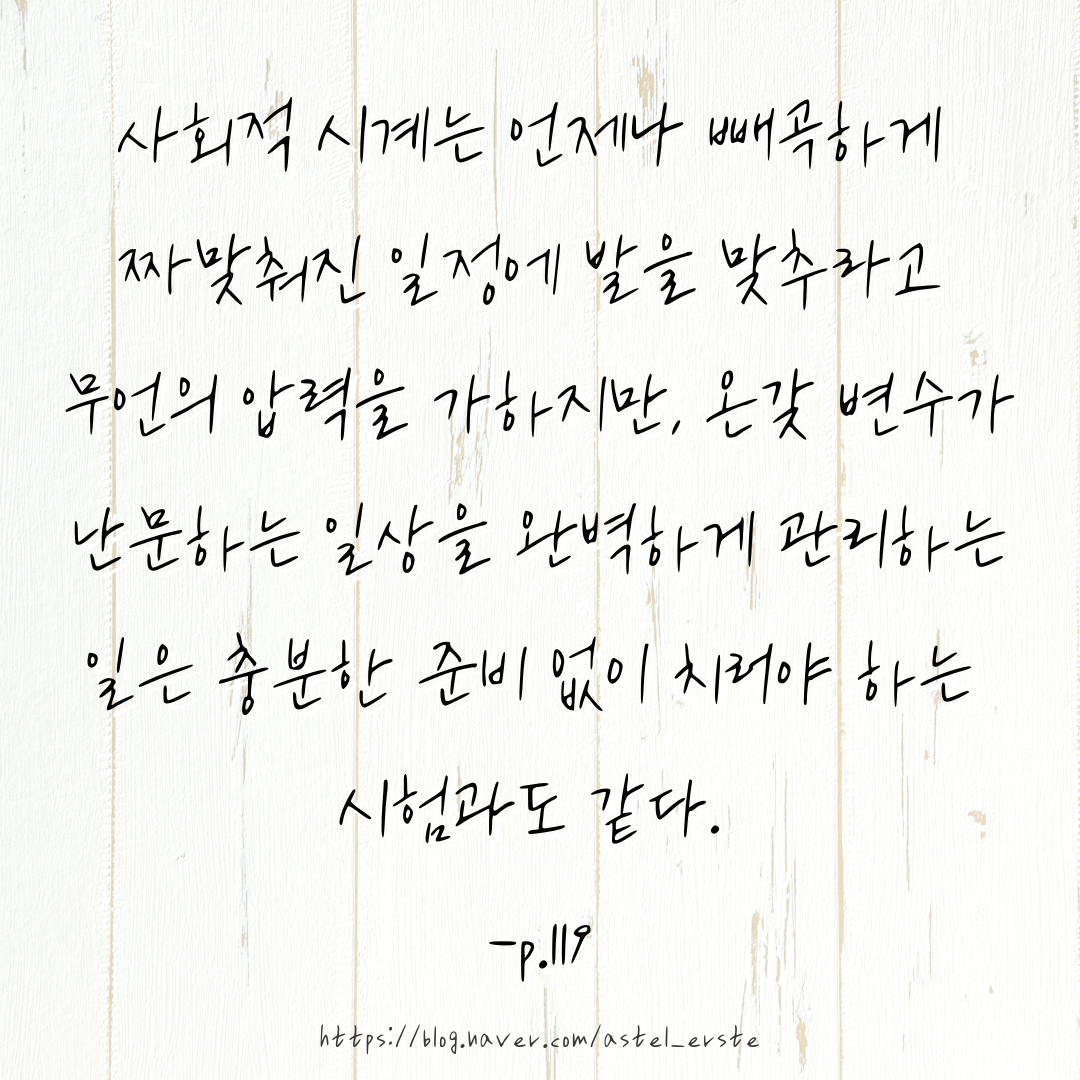 사회적 시계는 언제나 빼곡하게
짜맞춰진 일정에 발을 맞추라고
무언의 압력을 가하지만, 온갖 변수가
난문하는 일상을 완벽하게 관리하는
일은 충분한 준비 없이 치러야 하는
시험과도 같다.
-p.119
https://blog.naver.com/astel_erste